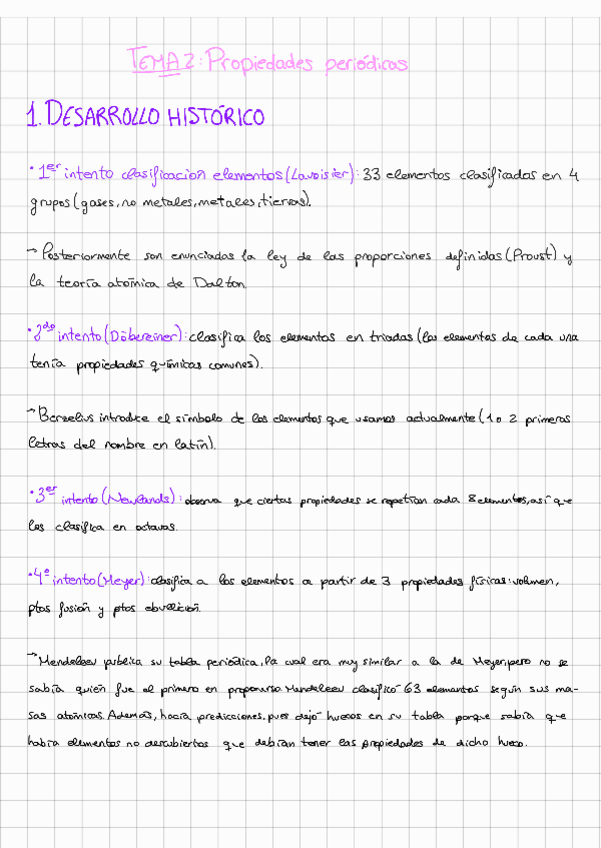 TEMA 2: Propiedades periódicas
1. DESARROLLO HISTÓRICO
· 1er intento clasificación elementos (Lavoisier): 33 elementos clasificados en 4
grupos (gases, no metales, metales, tierras).
→ Posteriormente son enunciadas la ley de las proporciones definidas (Proust) y
la teoría atómica de Dalton.
· 2do intento (Döbereiner): clasifica los elementos en triadas (los elementos de cada una
tenía propiedades químicas comunes).
→ Berzelius introduce el símbolo de los elementos que usamos actualmente (1 o 2 primeras
letras del nombre en latín).
· 3er intento (Newlands): observa que ciertas propiedades se repetían cada 8 elementos, así que
los clasifica en octavas.
· 4º intento (Meyer): clasifica a los elementos a partir de 3 propiedades físicas: volumen,
ptos fusión y ptos ebullición.
→ Mendeleev publica su tabla periódica, la cual era muy similar a la de Meyer, pero no se
sabía quién fue el primero en proponerlo. Mendeleev clasificó 63 elementos según sus ma-
sas atómicas. Además, hacía predicciones, pues dejó huecos en su tabla porque sabía que
había elementos no descubiertos que debían tener las propiedades de dicho hueco.